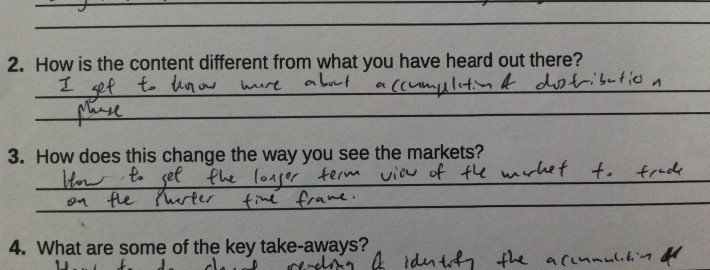 2. How is the content different from what you have heard out there?
I get to know more about accumulation & distribution
phase
3. How does this change the way you see the markets?
How to get the longer term view of the market to trade
on the shorter time frame.
4. What are some of the key take-aways?
How to do chart reading & identify the accumulation &